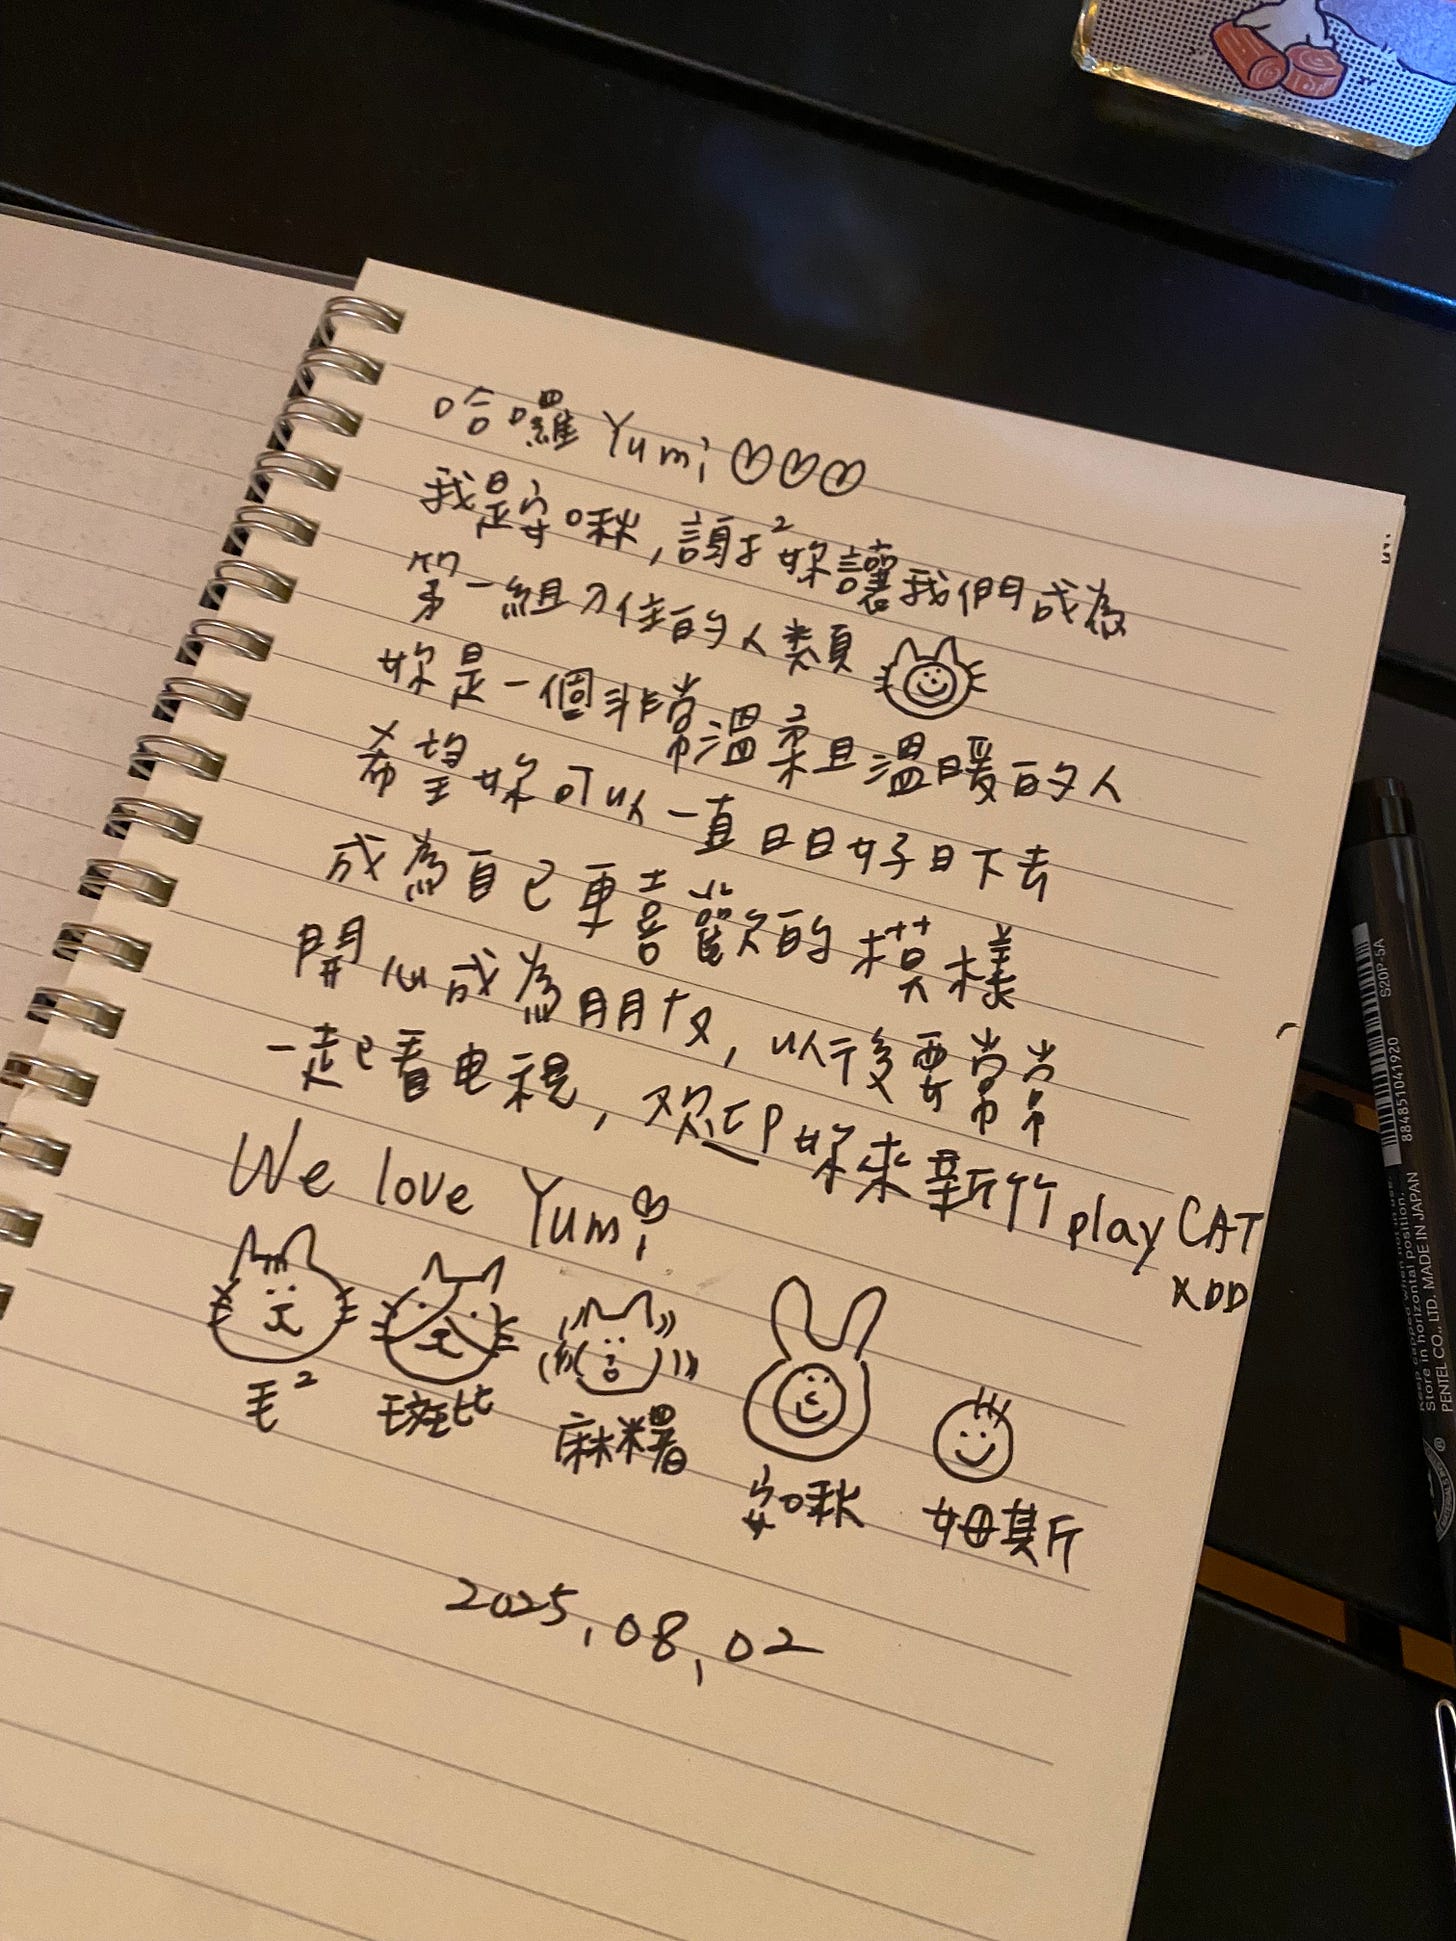 哈囉 Yumi ♡♡♡
我是安啾,謝²妳讓我們成為
第一組入住的人類
妳是一個非常溫柔且溫暖的人
希望妳可以一直日日好日下去
成為自己更喜歡的模樣
開心成為朋友,以後要常常
一起看电視,欢迎妳來新竹 play CAT
XDD
We love Yumi
毛² 斑比 麻糬 安啾 姆斯
2025.08.02
S20P-5A
884851041920
Keep capped when not in use.
Store in horizontal position.
PENTEL CO., LTD. MADE IN JAPAN